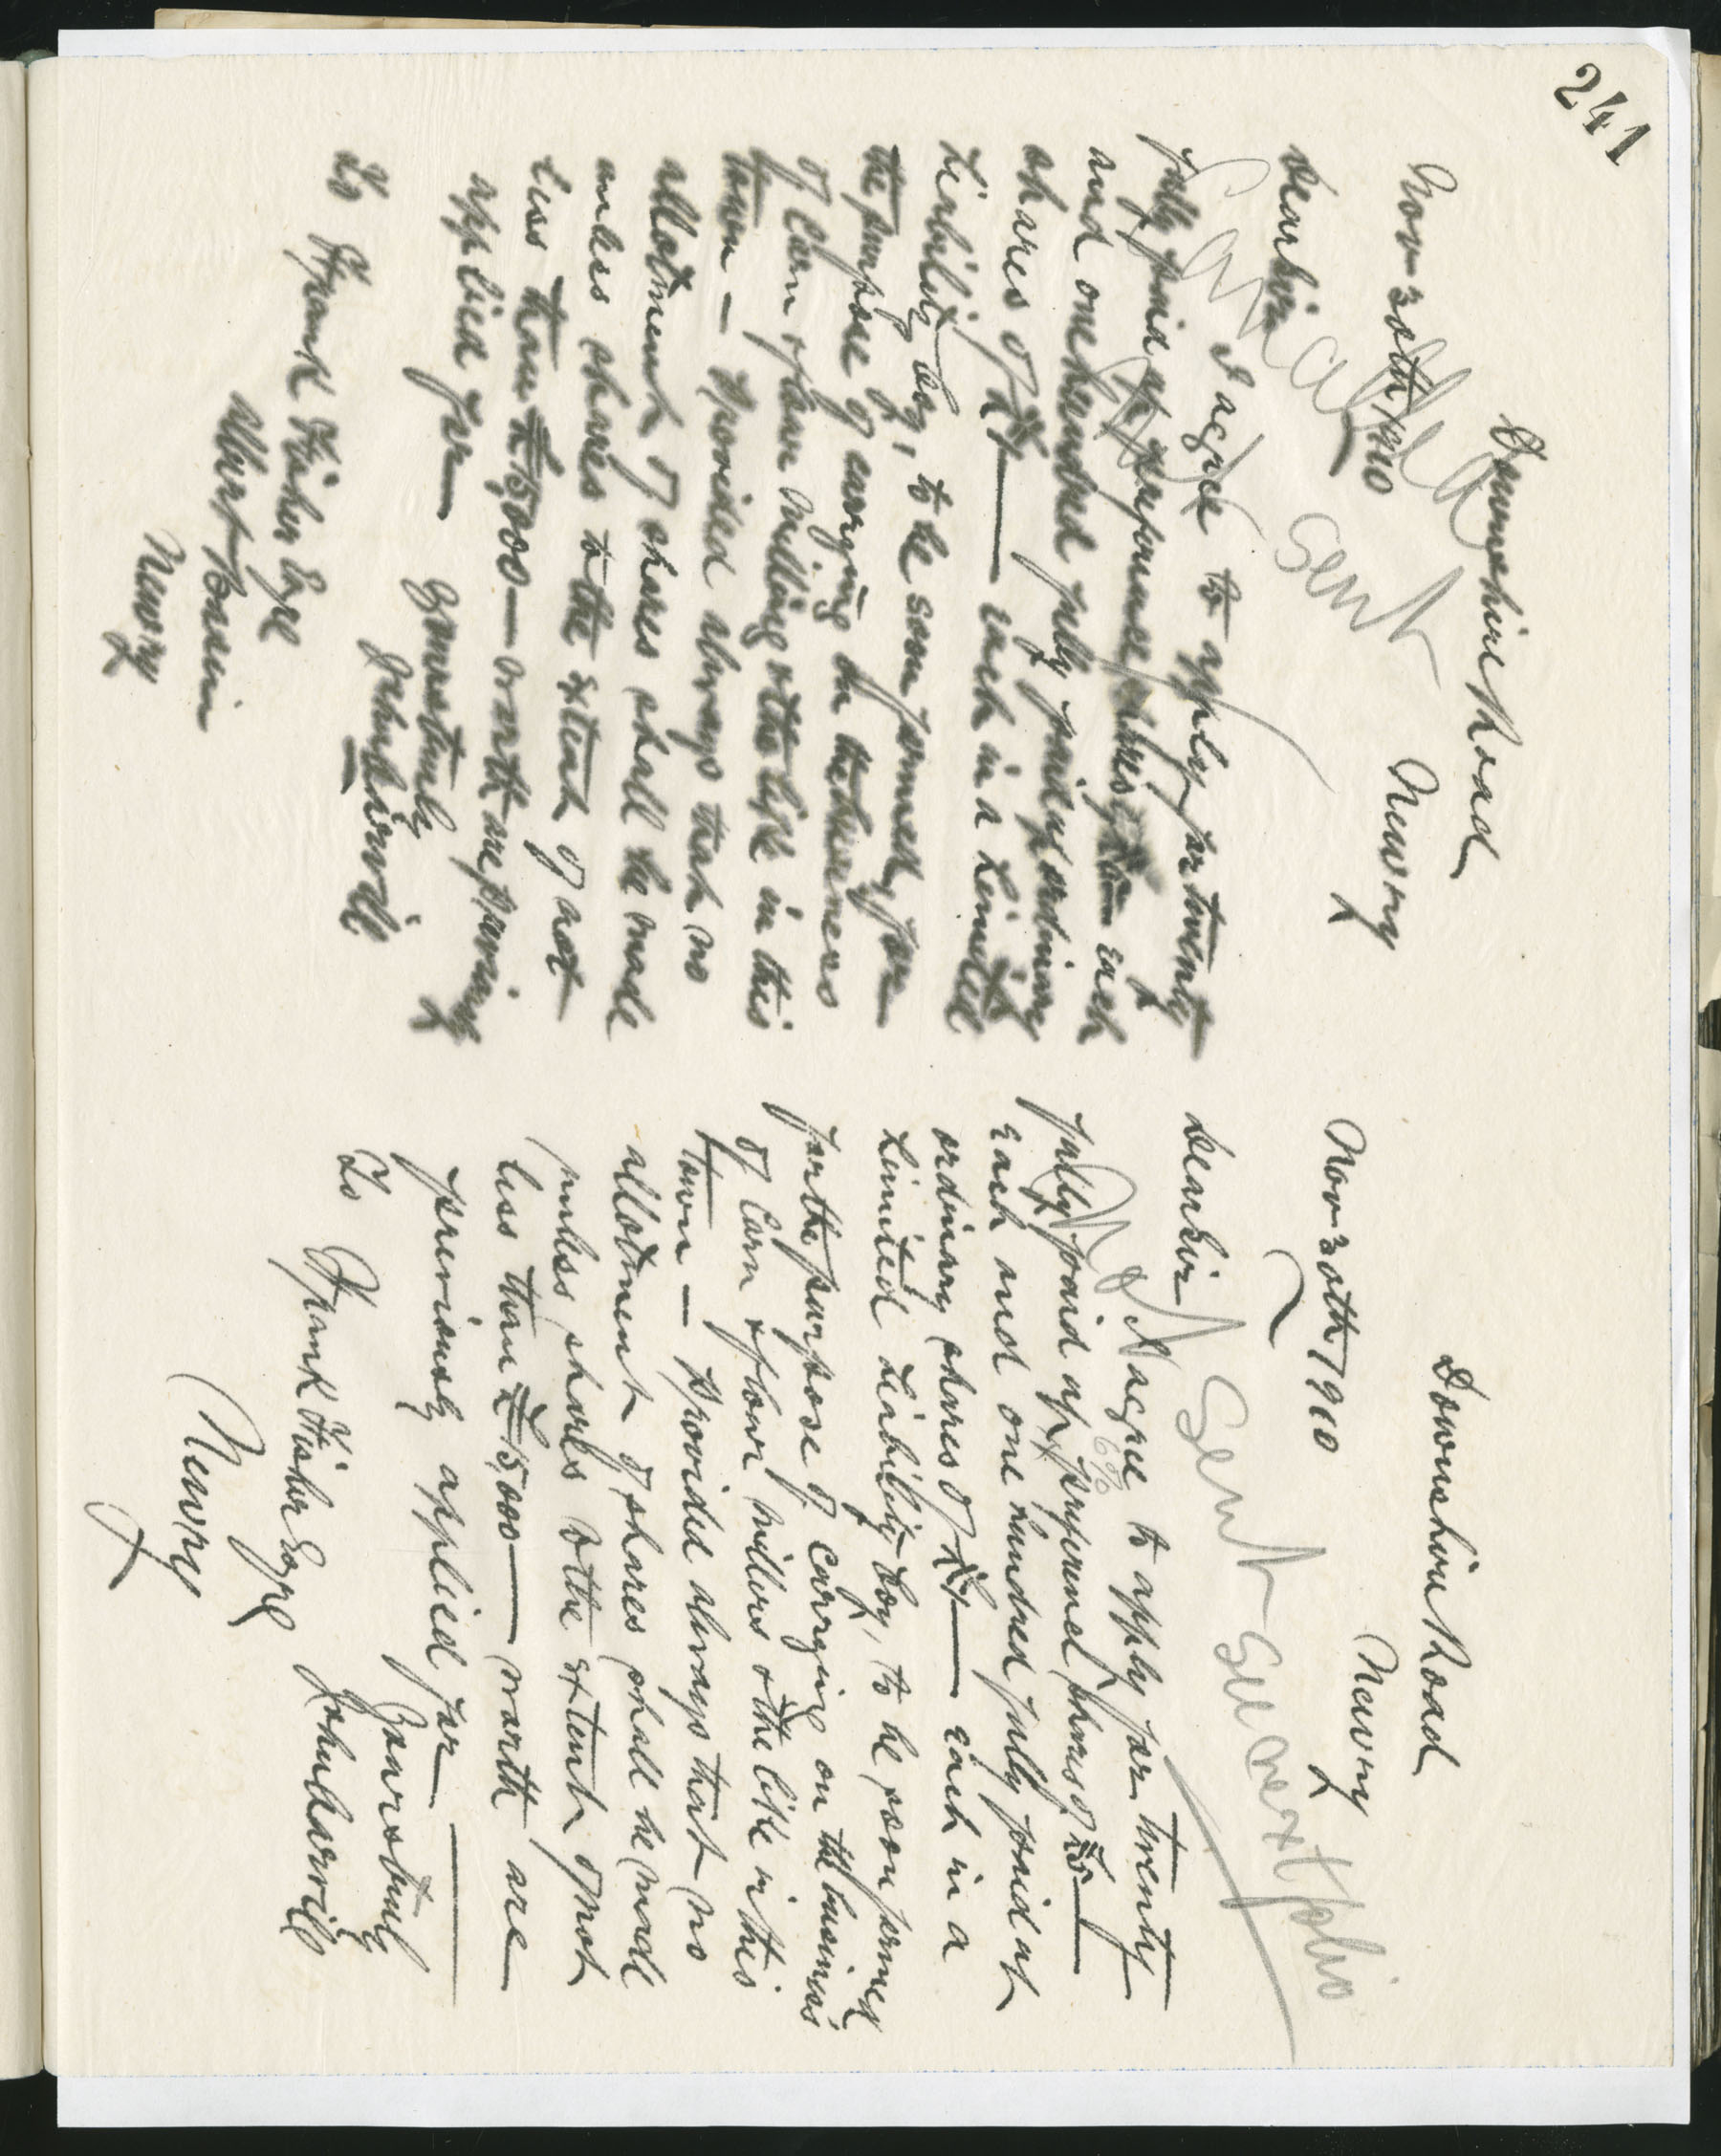 241
Downshire Road
Newry
Nov 30th 1910
Cancelled
Sent
Dear Sir
I agree to apply for twenty
fully paid up preference shares of each
and one hundred fully paid up ordinary
shares of £1 — each in a Limited
Liability Coy, to be soon formed, for
the purpose of carrying on the business
of Corn & flour Milling & the like in this
town — Provided always that no
allotment of shares shall be made
unless shares to the extent of not
less than £5000 — worth are previously
applied for — Yours truly
To Frank Fisher Esqe
Albert Basin
Newry
Downshire Road
Newry
Nov 30th 1910
Sent See next folio
Dear Sir
I agree to apply for twenty
6%
fully paid up x preferencel shares of £5 —
each and one hundred fully paid up
ordinary shares of £1 — each in a
Limited Liability Coy, to be soon formed
for the purpose of carrying on the business
of Corn & flour millers & the like in this
town — Provided always that no
allotment of shares shall be made
unless shares to the extent of not
less than £15,000 — worth are
previously applied for —
Yours truly
To Frank Fisher Esqe
Newry